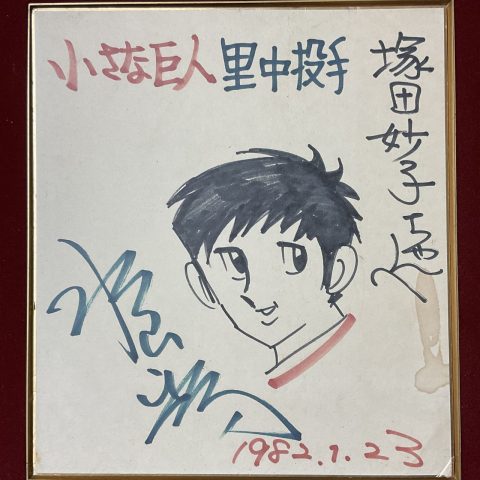 小さな巨人 里中投手
塚田妙子ちゃんへ
1982.1.23